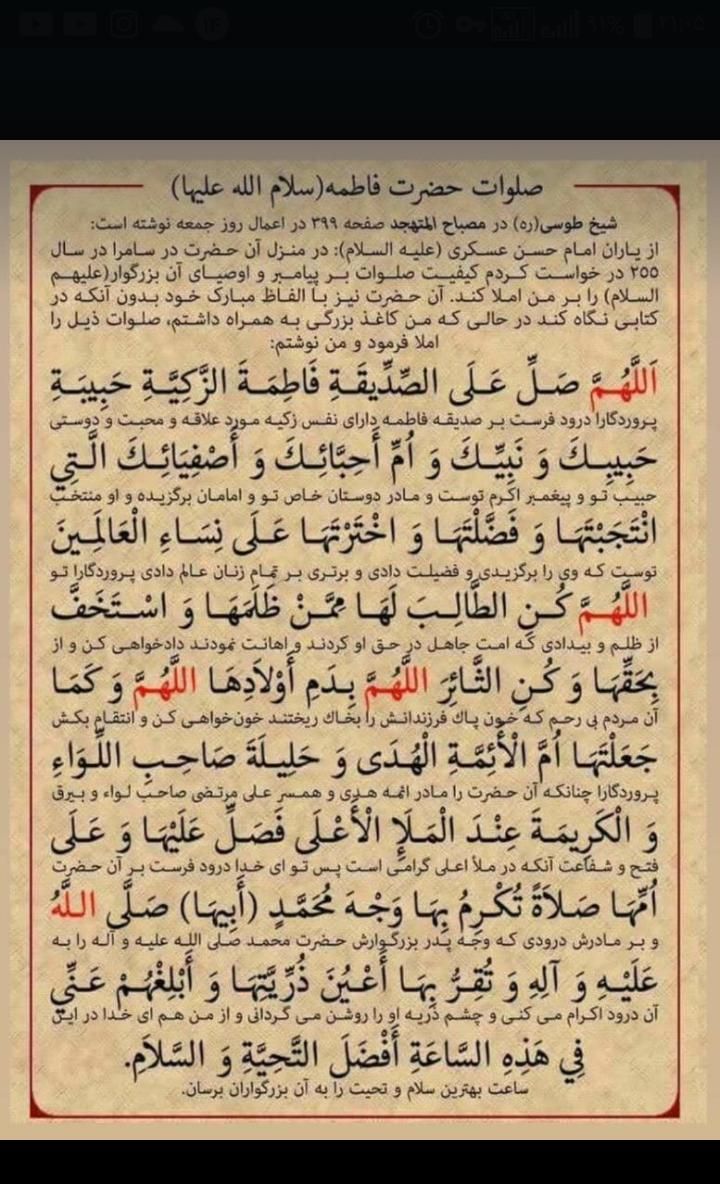 ۹۱%
۲۱:۰۵
صلوات حضرت فاطمه(سلام الله علیها)
شیخ طوسی(ره) در مصباح المتهجد صفحه ۳۹۹ در اعمال روز جمعه نوشته است:
از یاران امام حسن عسکری (علیه السلام): در منزل آن حضرت در سامرا در سال
۲۵۵ در خواست کردم کیفیت صلوات بر پیامبر و اوصیای آن بزرگوار(علیهم
السلام) را بر من املا کند. آن حضرت نیز با الفاظ مبارک خود بدون آنکه در
کتابی نگاه کند در حالی که من کاغذ بزرگی به همراه داشتم، صلوات ذیل را
املا فرمود و من نوشتم:
اَللَّهُمَّ صَلِّ عَلَى الصِّدِّيقَةِ فَاطِمَةَ الزَّكِيَّةِ حَبِيبَةِ
پروردگارا درود فرست بر صدیقه فاطمه دارای نفس زکیه مورد علاقه و محبت و دوستی
حَبِيبِكَ وَ نَبِيِّكَ وَ أُمِّ أَحِبَّائِكَ وَ أَصْفِيَائِكَ الَّتِي
حبیب تو و پیغمبر اکرم توست و مادر دوستان خاص تو و امامان برگزیده و او منتخب
انْتَجَبْتَهَا وَ فَضَّلْتَهَا وَ اخْتَرْتَهَا عَلَى نِسَاءِ الْعَالَمِينَ
توست که وی را برگزیدی و فضیلت دادی و برتری بر تمام زنان عالم دادی پروردگارا تو
اللَّهُمَّ كُنِ الطَّالِبَ لَهَا مِمَّنْ ظَلَمَهَا وَ اسْتَخَفَّ
از ظلم و بیدادی که امت جاهل در حق او کردند و اهانت نمودند دادخواهی کن و از
بِحَقِّهَا وَ كُنِ الثَّائِرَ اللَّهُمَّ بِدَمِ أَوْلَادِهَا اللَّهُمَّ وَ كَمَا
آن مردم بی رحم که خون پاك فرزندانش را بخاك ریختند خون‌خواهی کن و انتقام بکش
جَعَلْتَهَا أُمَّ الْأَئِمَّةِ الْهُدَى وَ حَلِيلَةَ صَاحِبِ اللِّوَاءِ
پروردگارا چنانکه آن حضرت را مادر ائمه هدی و همسر علی مرتضی صاحب لواء و بیرق
وَ الْكَرِيمَةَ عِنْدَ الْمَلَإِ الْأَعْلَى فَصَلِّ عَلَيْهَا وَ عَلَى
فتح و شفاعت آنکه در ملأ اعلی گرامی است پس تو ای خدا درود فرست بر آن حضرت
أُمِّهَا صَلاَةً تُكْرِمُ بِهَا وَجْهَ مُحَمَّدٍ (أَبِيهَا) صَلَّى اللَّهُ
و بر مادرش درودی که وجه پدر بزرگوارش حضرت محمد صلی الله علیه و آله را به
عَلَيْهِ وَ آلِهِ وَ تُقِرُّ بِهَا أَعْيُنَ ذُرِّيَّتِهَا وَ أَبْلِغْهُمْ عَنِّي
آن درود اکرام می کنی و چشم ذریه او را روشن می گردانی و از من هم ای خدا در این
فِي هَذِهِ السَّاعَةِ أَفْضَلَ التَّحِيَّةِ وَ السَّلاَمِ.
ساعت بهترین سلام و تحیت را به آن بزرگواران برسان.